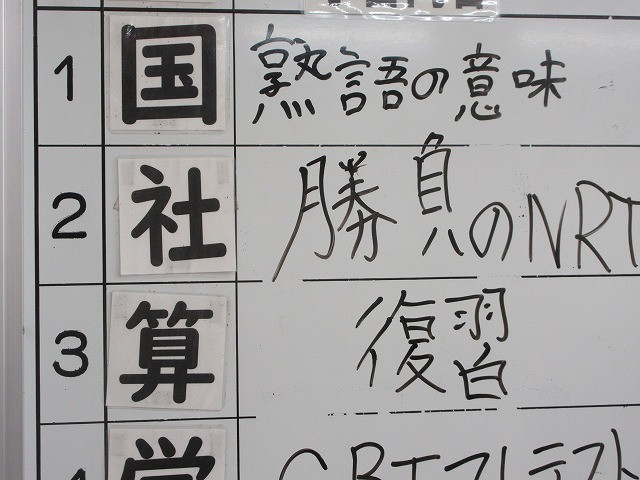 1 国 熟語の意味
2 社 勝負のNRT
3 算 復習
4 学 CRTプレテスト